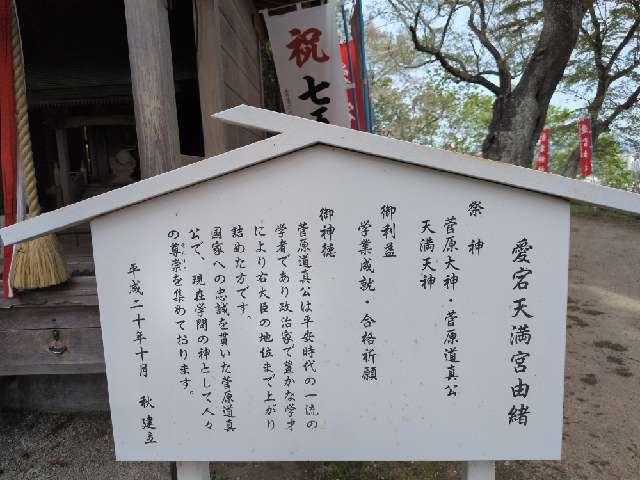 愛宕天満宮由緒
祭神
菅原大神・菅原道真公
天満天神
御利益
学業成就・合格祈願
御神徳
菅原道真公は平安時代の一流の
学者であり政治家で豊かな学才
により右大臣の地位まで上がり
詰めた方です。
国家への忠誠を貫いた菅原道真
公で、現在学問の神として人々
の尊崇を集めております。
平成二十年十月 秋建立
祝
七五